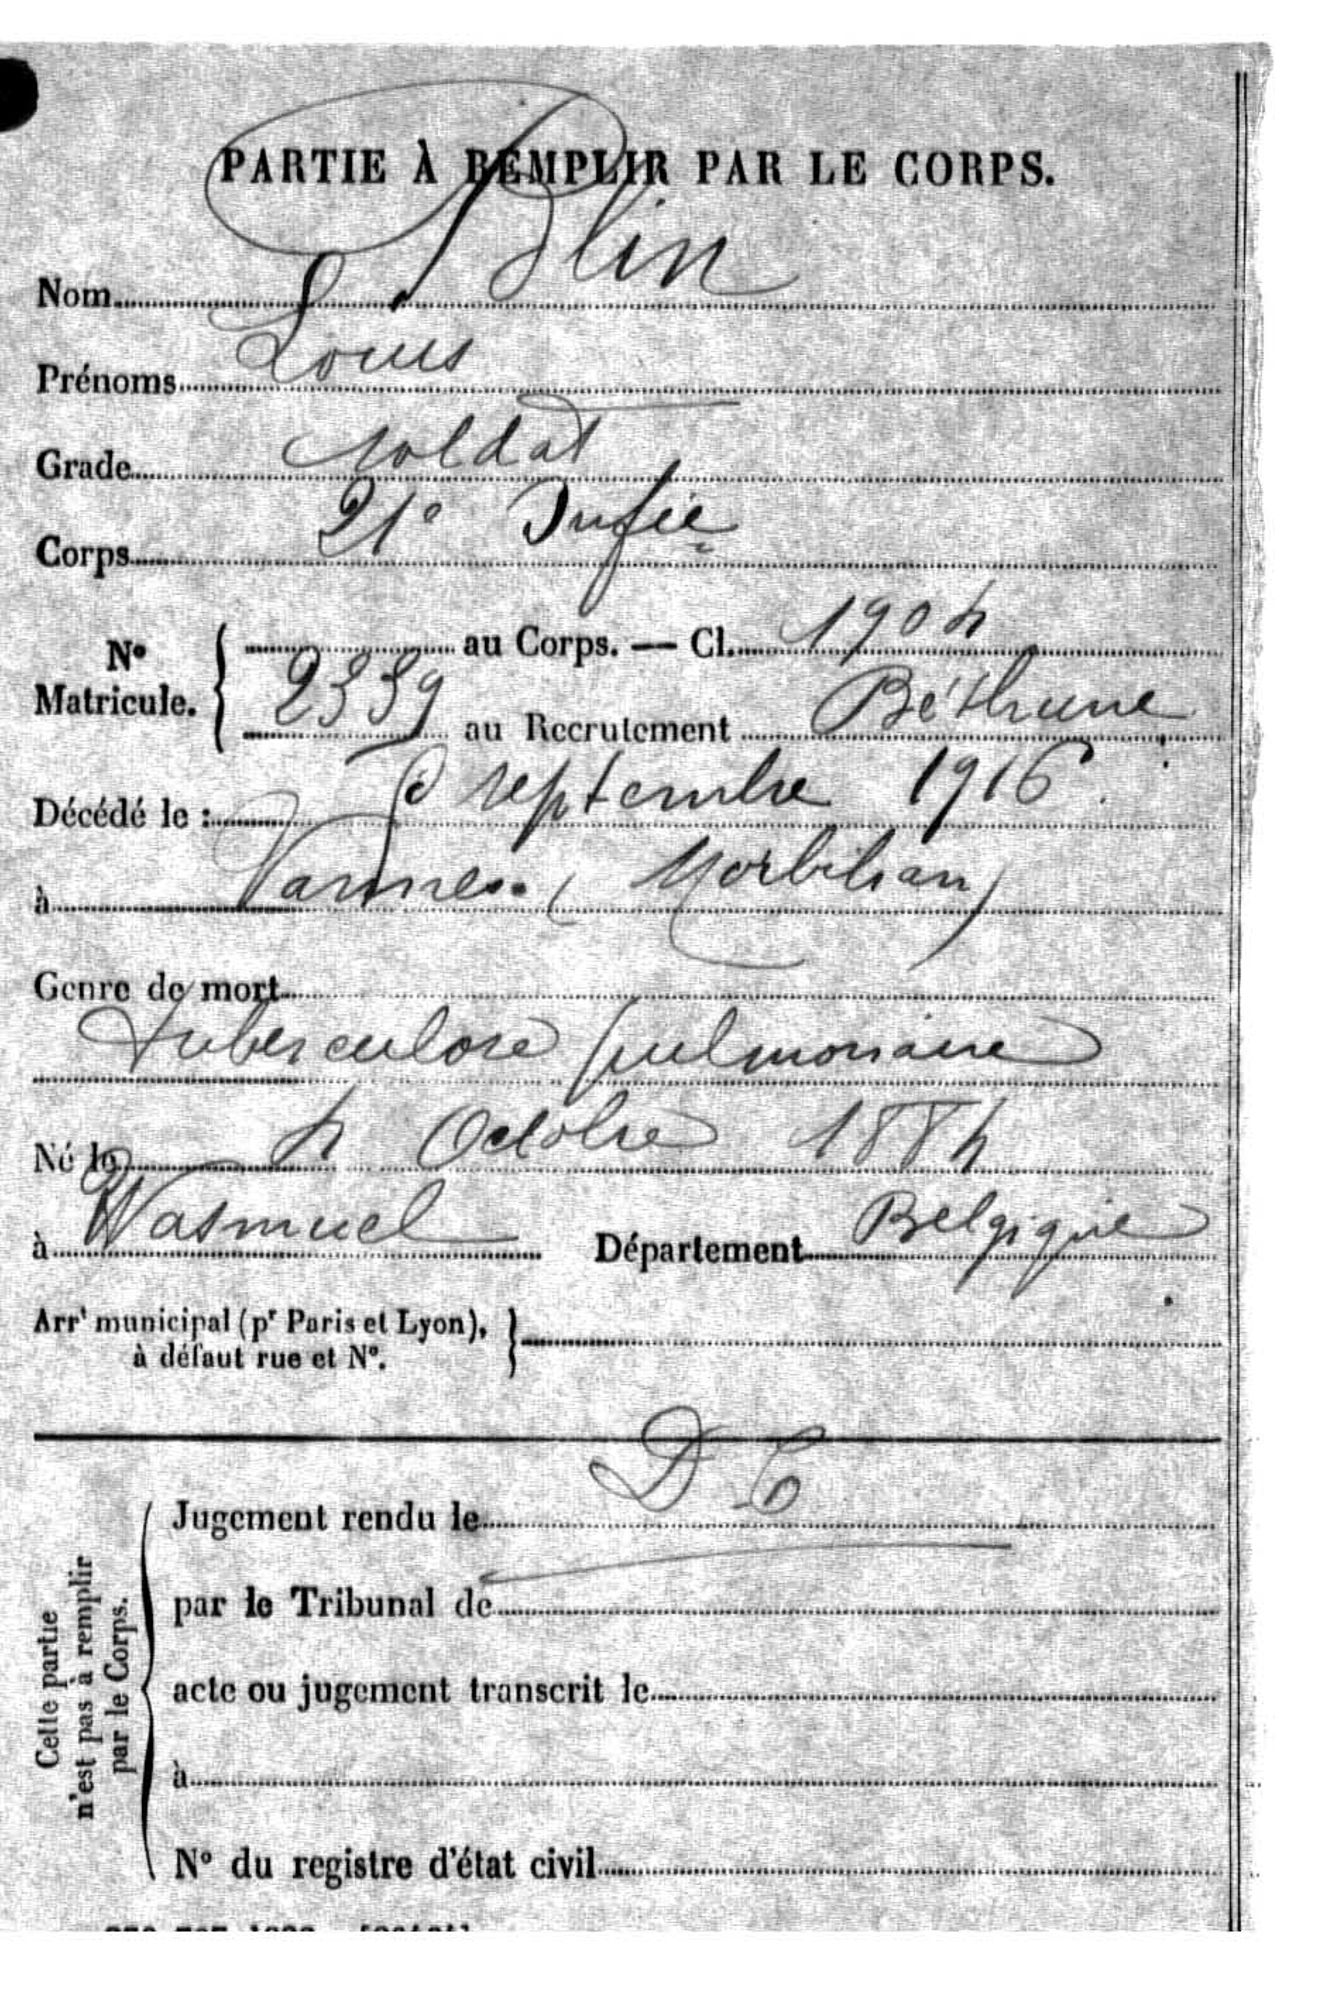 PARTIE À REMPLIR PAR LE CORPS.
Nom Blin
Prénoms Louis
Grade soldat
Corps 21e Infie
No Matricule. { au Corps. — Cl. 1904
2339 au Recrutement Béthune
Décédé le : septembre 1916.
à Vannes (Morbihan)
Genre de mort
tuberculose pulmonaire
Né le 4 Octobre 1884
à Wasmuel Département Belgique
Arrt municipal (pr Paris et Lyon), à défaut rue et No. }
D C
Cette partie n'est pas à remplir par le Corps.
Jugement rendu le
par le Tribunal de
acte ou jugement transcrit le
à
No du registre d'état civil